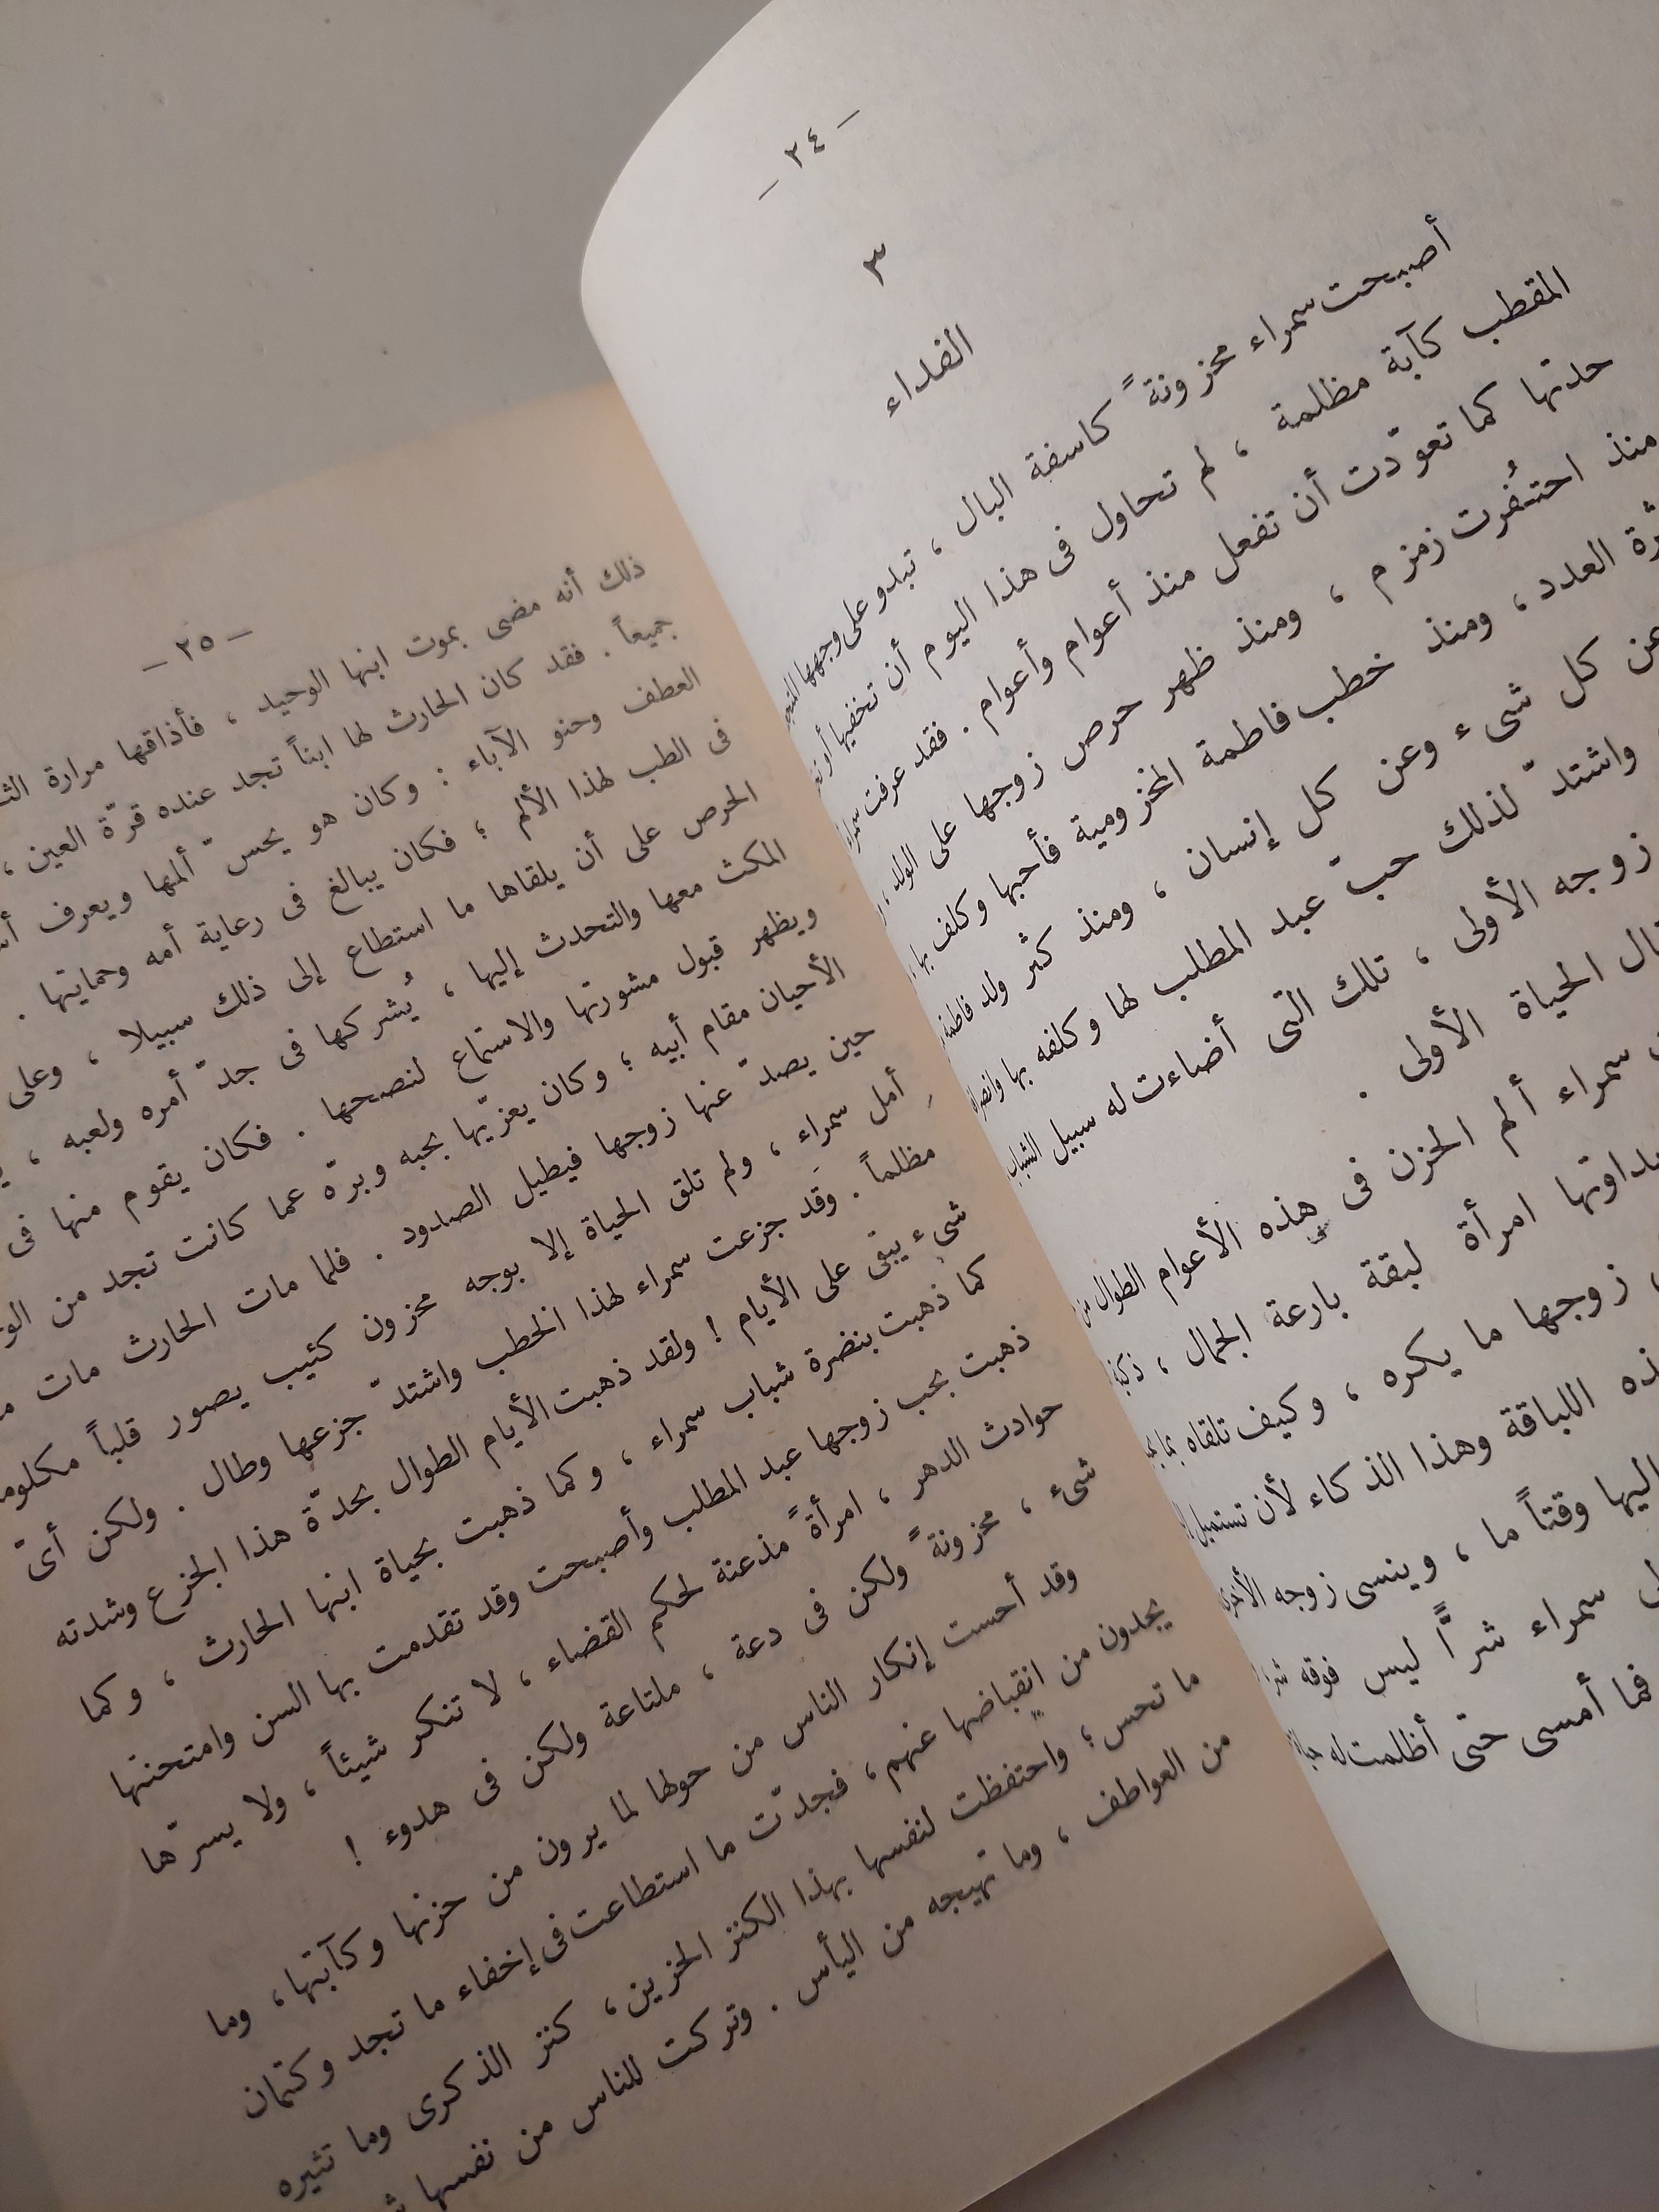 — ٢٤ —
٣
الفداء
أصبحت سمراء محزونةً كاسفة البال ، تبدو على وجهها
المقطب كآبة مظلمة ، لم تحاول فى هذا اليوم أن تخفيها أو
حدتها كما تعوّدت أن تفعل منذ أعوام وأعوام . فقد عرفت سمراء
منذ احتُفرت زمزم ، ومنذ ظهر حرص زوجها على الولد ،
العدد ، ومنذ خطب فاطمة المخزومية فأحبها وكلف بها ،
عن كل شىء وعن كل إنسان ، ومنذ كثر ولد فاطمة
واشتدّ لذلك حبّ عبد المطلب لها وكلفه بها
زوجه الأولى ، تلك التى أضاءت له سبيل الشباب
الحياة الأولى .
سمراء ألم الحزن فى هذه الأعوام الطوال من
امرأة لبقة بارعة الجمال ،
زوجها ما يكره ، وكيف تلقاه
اللباقة وهذا الذكاء لأن تستميل
إليها وقتاً ما ، وينسى زوجه الأخرى
سمراء شرًّا ليس فوقه
فما أمسى حتى أظلمت له
— ٢٥ —
ذلك أنه مضى بموت ابنها الوحيد ، فأذاقها مرارة
جميعاً . فقد كان الحارث لها ابناً تجد عنده قرّة العين ،
العطف وحنو الآباء : وكان هو يحسّ ألمها ويعرف
فى الطب لهذا الألم ؛ فكان يبالغ فى رعاية أمه وحمايتها .
الحرص على أن يلقاها ما استطاع إلى ذلك سبيلا ، وعلى
المكث معها والتحدث إليها ، يُشركها فى جدّ أمره ولعبه ،
ويظهر قبول مشورتها والاستماع لنصحها . فكان يقوم منها فى
الأحيان مقام أبيه ؛ وكان يعزّيها بحبه وبرّه عما كانت تجد من
حين يصدّ عنها زوجها فيطيل الصدود . فلما مات الحارث مات
أمل سمراء ، ولم تلق الحياة إلا بوجه محزون كئيب يصور قلباً
مظلماً . وقد جزعت سمراء لهذا الخطب واشتدّ جزعها وطال . ولكن أىّ
شىء يبقى على الأيام ! ولقد ذهبت الأيام الطوال بحدّة هذا الجزع وشدته
كما ذهبت بنضرة شباب سمراء ، وكما ذهبت بحياة ابنها الحارث ، وكما
ذهبت بحب زوجها عبد المطلب وأصبحت وقد تقدمت بها السن وامتحنتها
حوادث الدهر ، امرأةً مذعنة لحكم القضاء ، لا تنكر شيئاً ، ولا يسرّها
شىء ، محزونةً ولكن فى دعة ، ملتاعة ولكن فى هدوء !
وقد أحست إنكار الناس من حولها لما يرون من حزنها وكآبتها ، وما
يجدون من انقباضها عنهم ، فجدّت ما استطاعت فى إخفاء ما تجد وكتمان
ما تحس ؛ واحتفظت لنفسها بهذا الكنز الحزين ، كنز الذكرى وما تثيره
من العواطف ، وما تهيجه من اليأس . وتركت للناس من نفسها